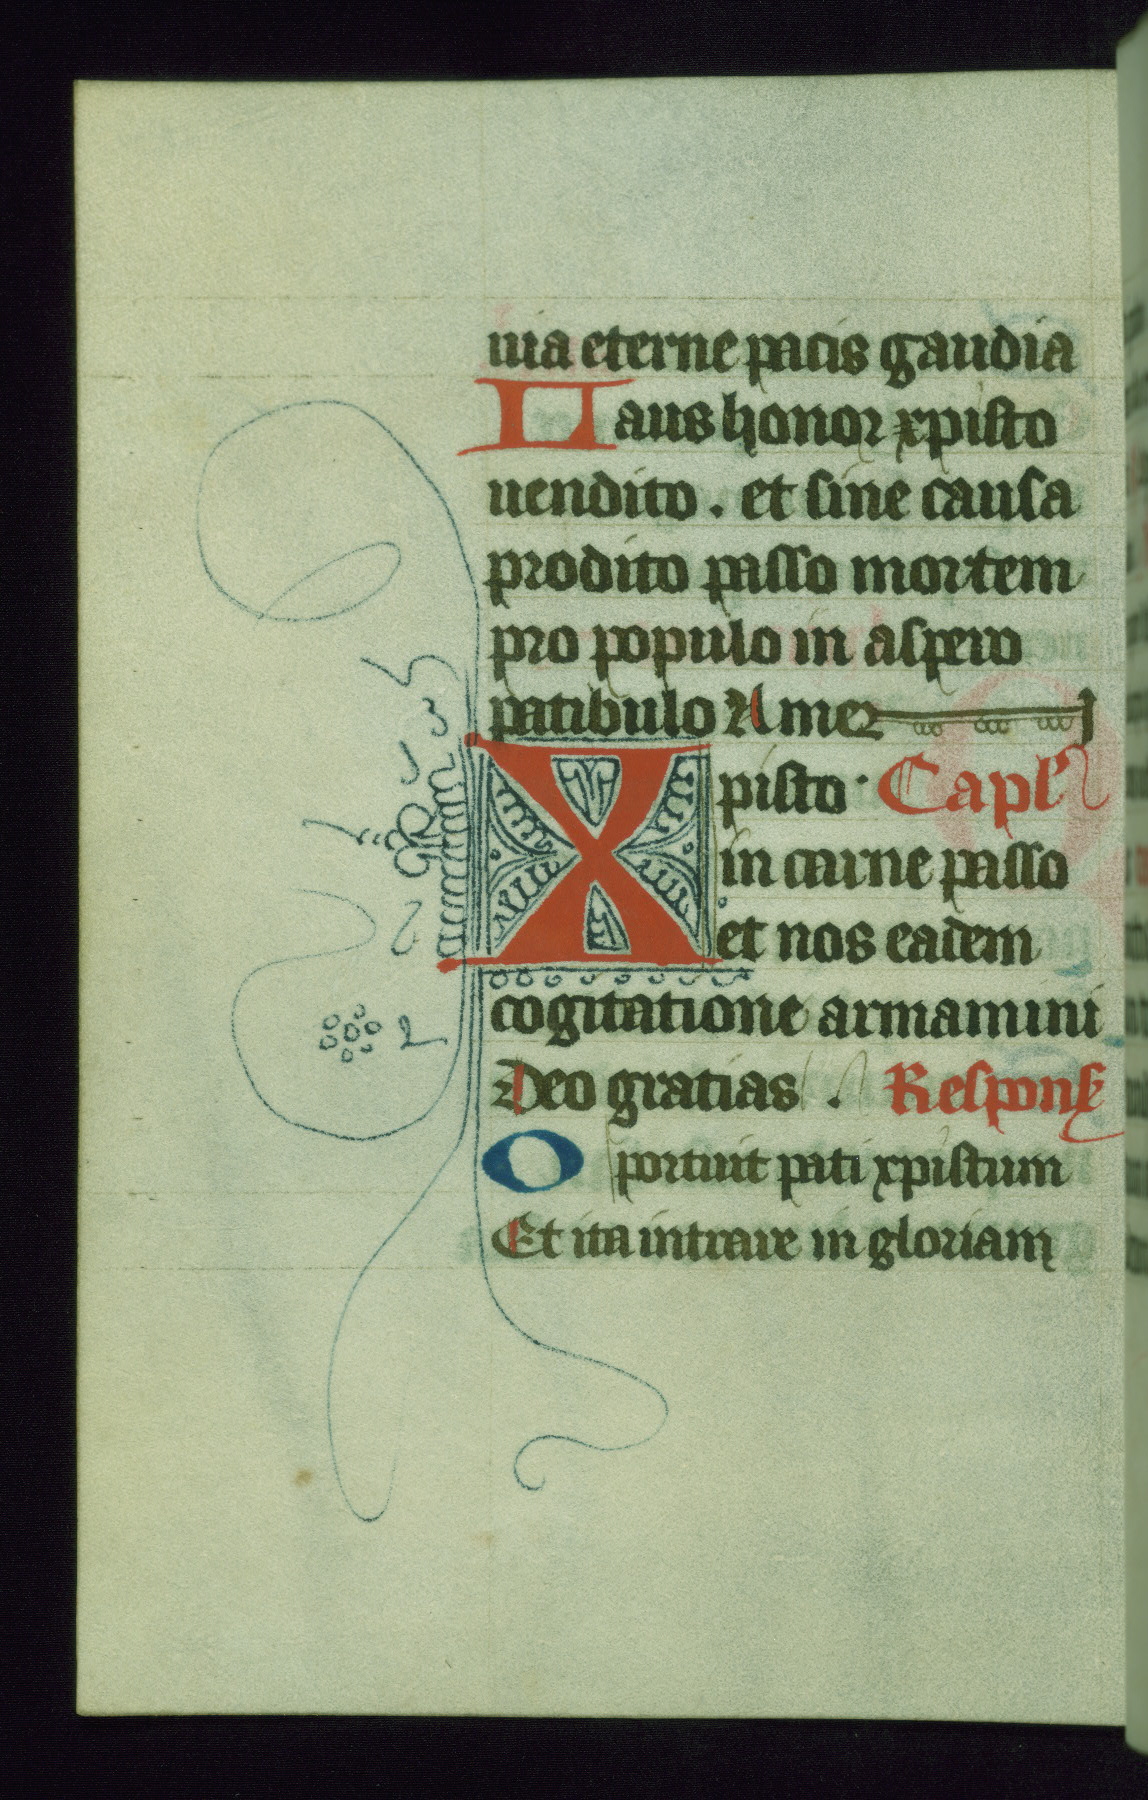 uia eterne pacis gaudia
Laus honor xpisto
uendito . et sine causa
prodito passo mortem
pro populo in aspero
patibulo Amen
Xpisto · Capl
in carne passo
et nos eadem
cogitatione armamini
Deo gratias . Respons
Oportuit pati xpistum
Et ita intrare in gloriam